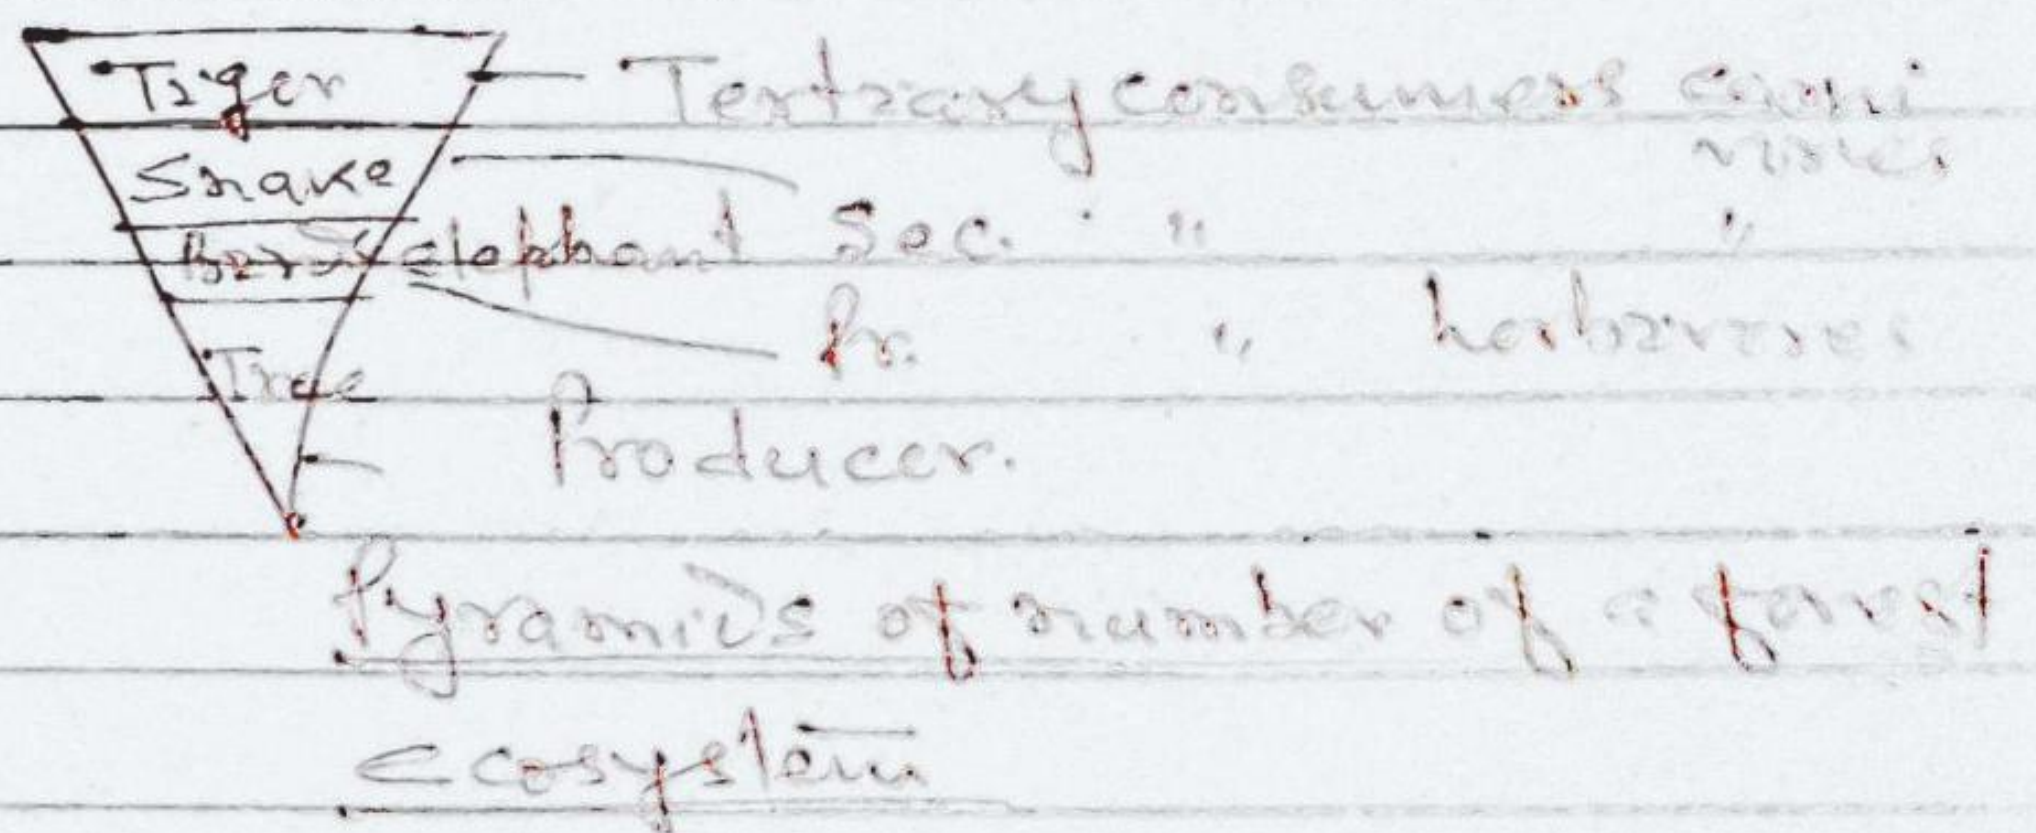 Tiger Tertiary consumers carni
vores
Snake
Birds elephant Sec. " "
Pr. " herbivores
Tree
Producer.
Pyramids of number of a forest
ecosystem